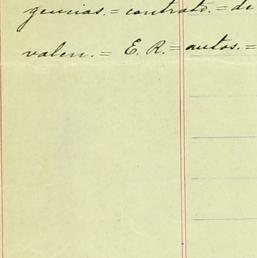 gencias.=contrato.=de
valen.= E. R.=autos.=